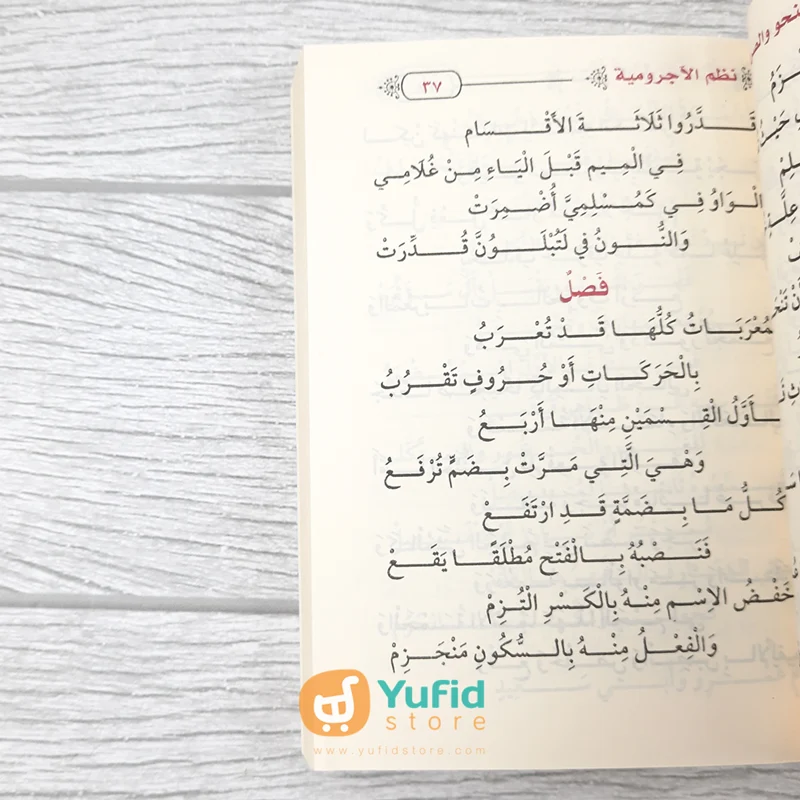 نظم الآجرومية ٣٧
قَدَّرُوا ثَلَاثَةَ الأَقْسَامِ
فِي الْمِيمِ قَبْلَ الْيَاءِ مِنْ غُلَامِي
الْوَاوُ فِي كَمُسْلِمِيَّ أُضْمِرَتْ
وَالنُّونُ فِي لَتُبْلَوُنَّ قُدِّرَتْ
فَصْلٌ
مُعْرَبَاتُ كُلُّهَا قَدْ تُعْرَبُ
بِالْحَرَكَاتِ أَوْ حُرُوفٍ تَقْرُبُ
أَوَّلُ الْقِسْمَيْنِ مِنْهَا أَرْبَعُ
وَهْيَ الَّتِي مَرَّتْ بِضَمٍّ تُرْفَعُ
كُلُّ مَا بِضَمَّةٍ قَدِ ارْتَفَعْ
فَنَصْبُهُ بِالْفَتْحِ مُطْلَقًا يَقَعْ
خَفْضُ الِاسْمِ مِنْهُ بِالْكَسْرِ الْتُزِمْ
وَالْفِعْلُ مِنْهُ بِالسُّكُونِ مَنْجَزِمْ
Yufid
store
www.yufidstore.com